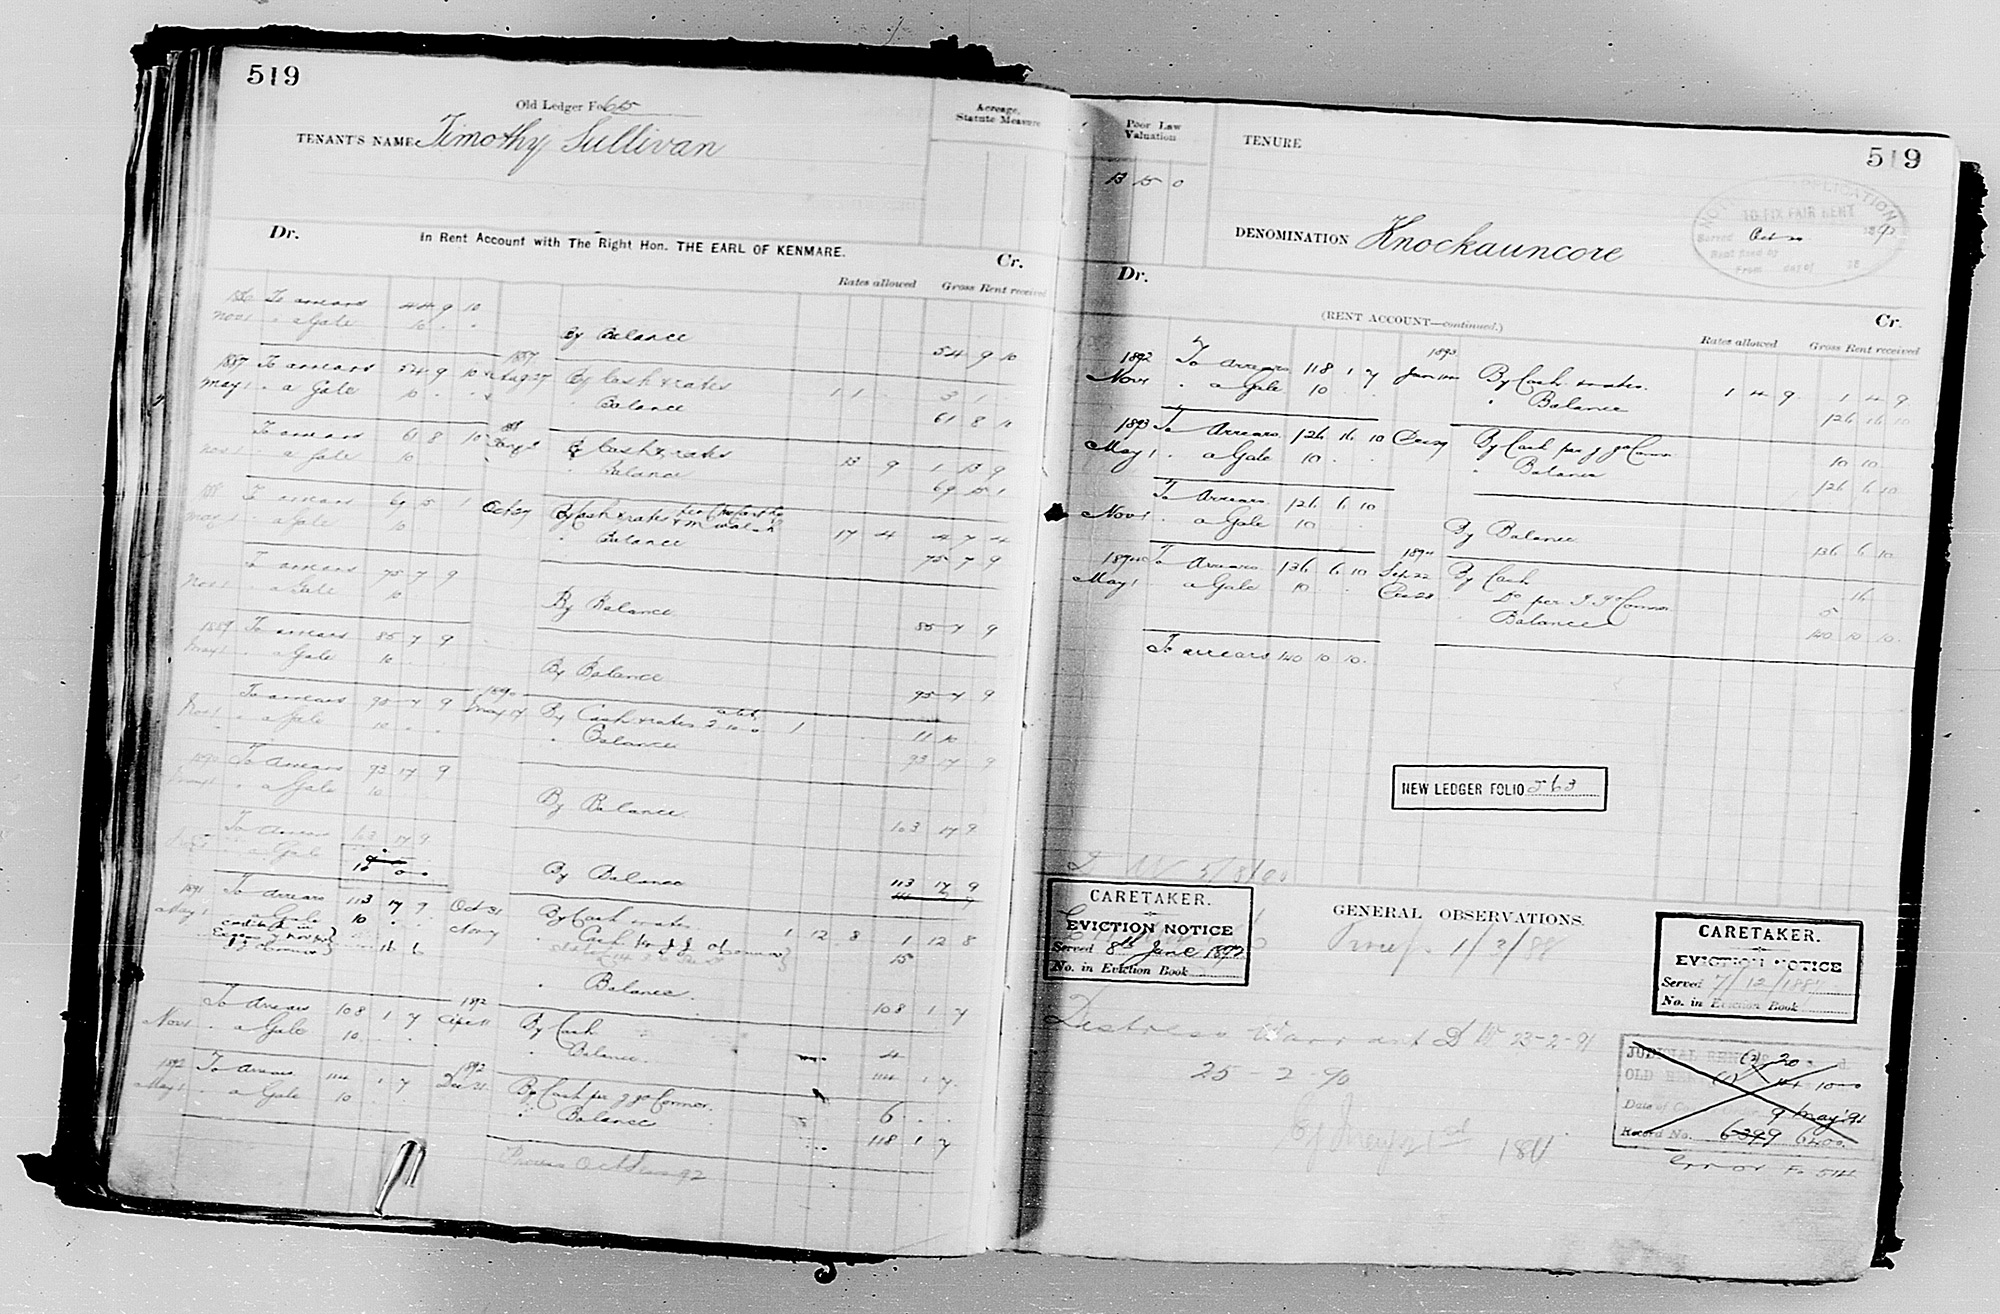 519
Old Ledger Fo 615
TENANT'S NAME Timothy Sullivan
Acreage, Statute Measure
Dr. In Rent Account with The Right Hon. THE EARL OF KENMARE. Cr.
Rates allowed Gross Rent received
To arrears 44 9 10
Nov 1 " a Gale 10 " "
By Balance 54 9 10
1887 To arrears 54 9 10 1887 Aug 27 By Cash & rates 1 1 3 1
May 1 " a Gale 10 Balance 61 8 10
To arrears 61 8 10 By Cash & rates 13 9 1 13 9
Nov 1 " a Gale 10 Balance 69 15 1
To arrears 69 5 1 Oct 27 By Cash & rates 17 4 4 7 4
May 1 " a Gale 10 " Balance 75 7 9
To arrears 75 7 9
Nov 1 " a Gale 10 By Balance 85 7 9
1889 To arrears 85 7 9
May 1 " a Gale 10 By Balance 95 7 9
To arrears 95 7 9 1890 May 17 By Cash & rates 1 11 10
Nov 1 " a Gale 10 " Balance 93 17 9
1890 To arrears 93 17 9
May 1 " a Gale 10 By Balance 103 17 9
To arrears 103 17 9
" a Gale 10 By Balance 113 17 9
1891 To arrears 113 17 9 Oct 31 By Cash & rates 1 12 8 1 12 8
May 1 a Gale 10 " Cash per J J O'Connor 15
16 6
" Balance 108 1 7
To Arrears 108 1 7 1892 By Cash 4
Nov 1 " a Gale 10 " Balance 114 1 7
1892 To Arrears 114 1 7 1892 Dec 31 By Cash per J J O'Connor 6
May 1 " a Gale 10 " Balance 118 1 7
Process Oct 92
Poor Law Valuation
13 15 0
TENURE
519
DENOMINATION Knockauncore
NOTICE APPLICATION
TO FIX FAIR RENT
Served Oct 1892
Rent fixed by
From day of 18
Dr. (RENT ACCOUNT—continued.) Cr.
Rates allowed Gross Rent received
1892 To Arrears 118 1 7 1893 By Cash & rates 1 4 9 1 4 9
Nov 1 " a Gale 10 " Balance 126 16 10
1893 To Arrears 126 16 10 Dec 29 By Cash per J J O'Connor 10 10
May 1 " a Gale 10 " Balance 126 6 10
To Arrears 126 6 10
Nov 1 " a Gale 10 By Balance 136 6 10
1894 To Arrears 136 6 10 1894 Sept 22 By Cash 16
May 1 a Gale 10 Dec 28 Do per J J O'Connor 5
Balance 140 10 10
To arrears 140 10 10
NEW LEDGER FOLIO 563
CARETAKER.
EVICTION NOTICE
Served 8th June 1892
No. in Eviction Book
GENERAL OBSERVATIONS.
Process 1/3/88
CARETAKER.
EVICTION NOTICE
Served 7/12/188
No. in Eviction Book
Distress Warrant D W 23-2-91
25-2-90
JUDICIAL RENT
OLD RENT
9 May '91
Record No. 6399 6400
error Fo 514